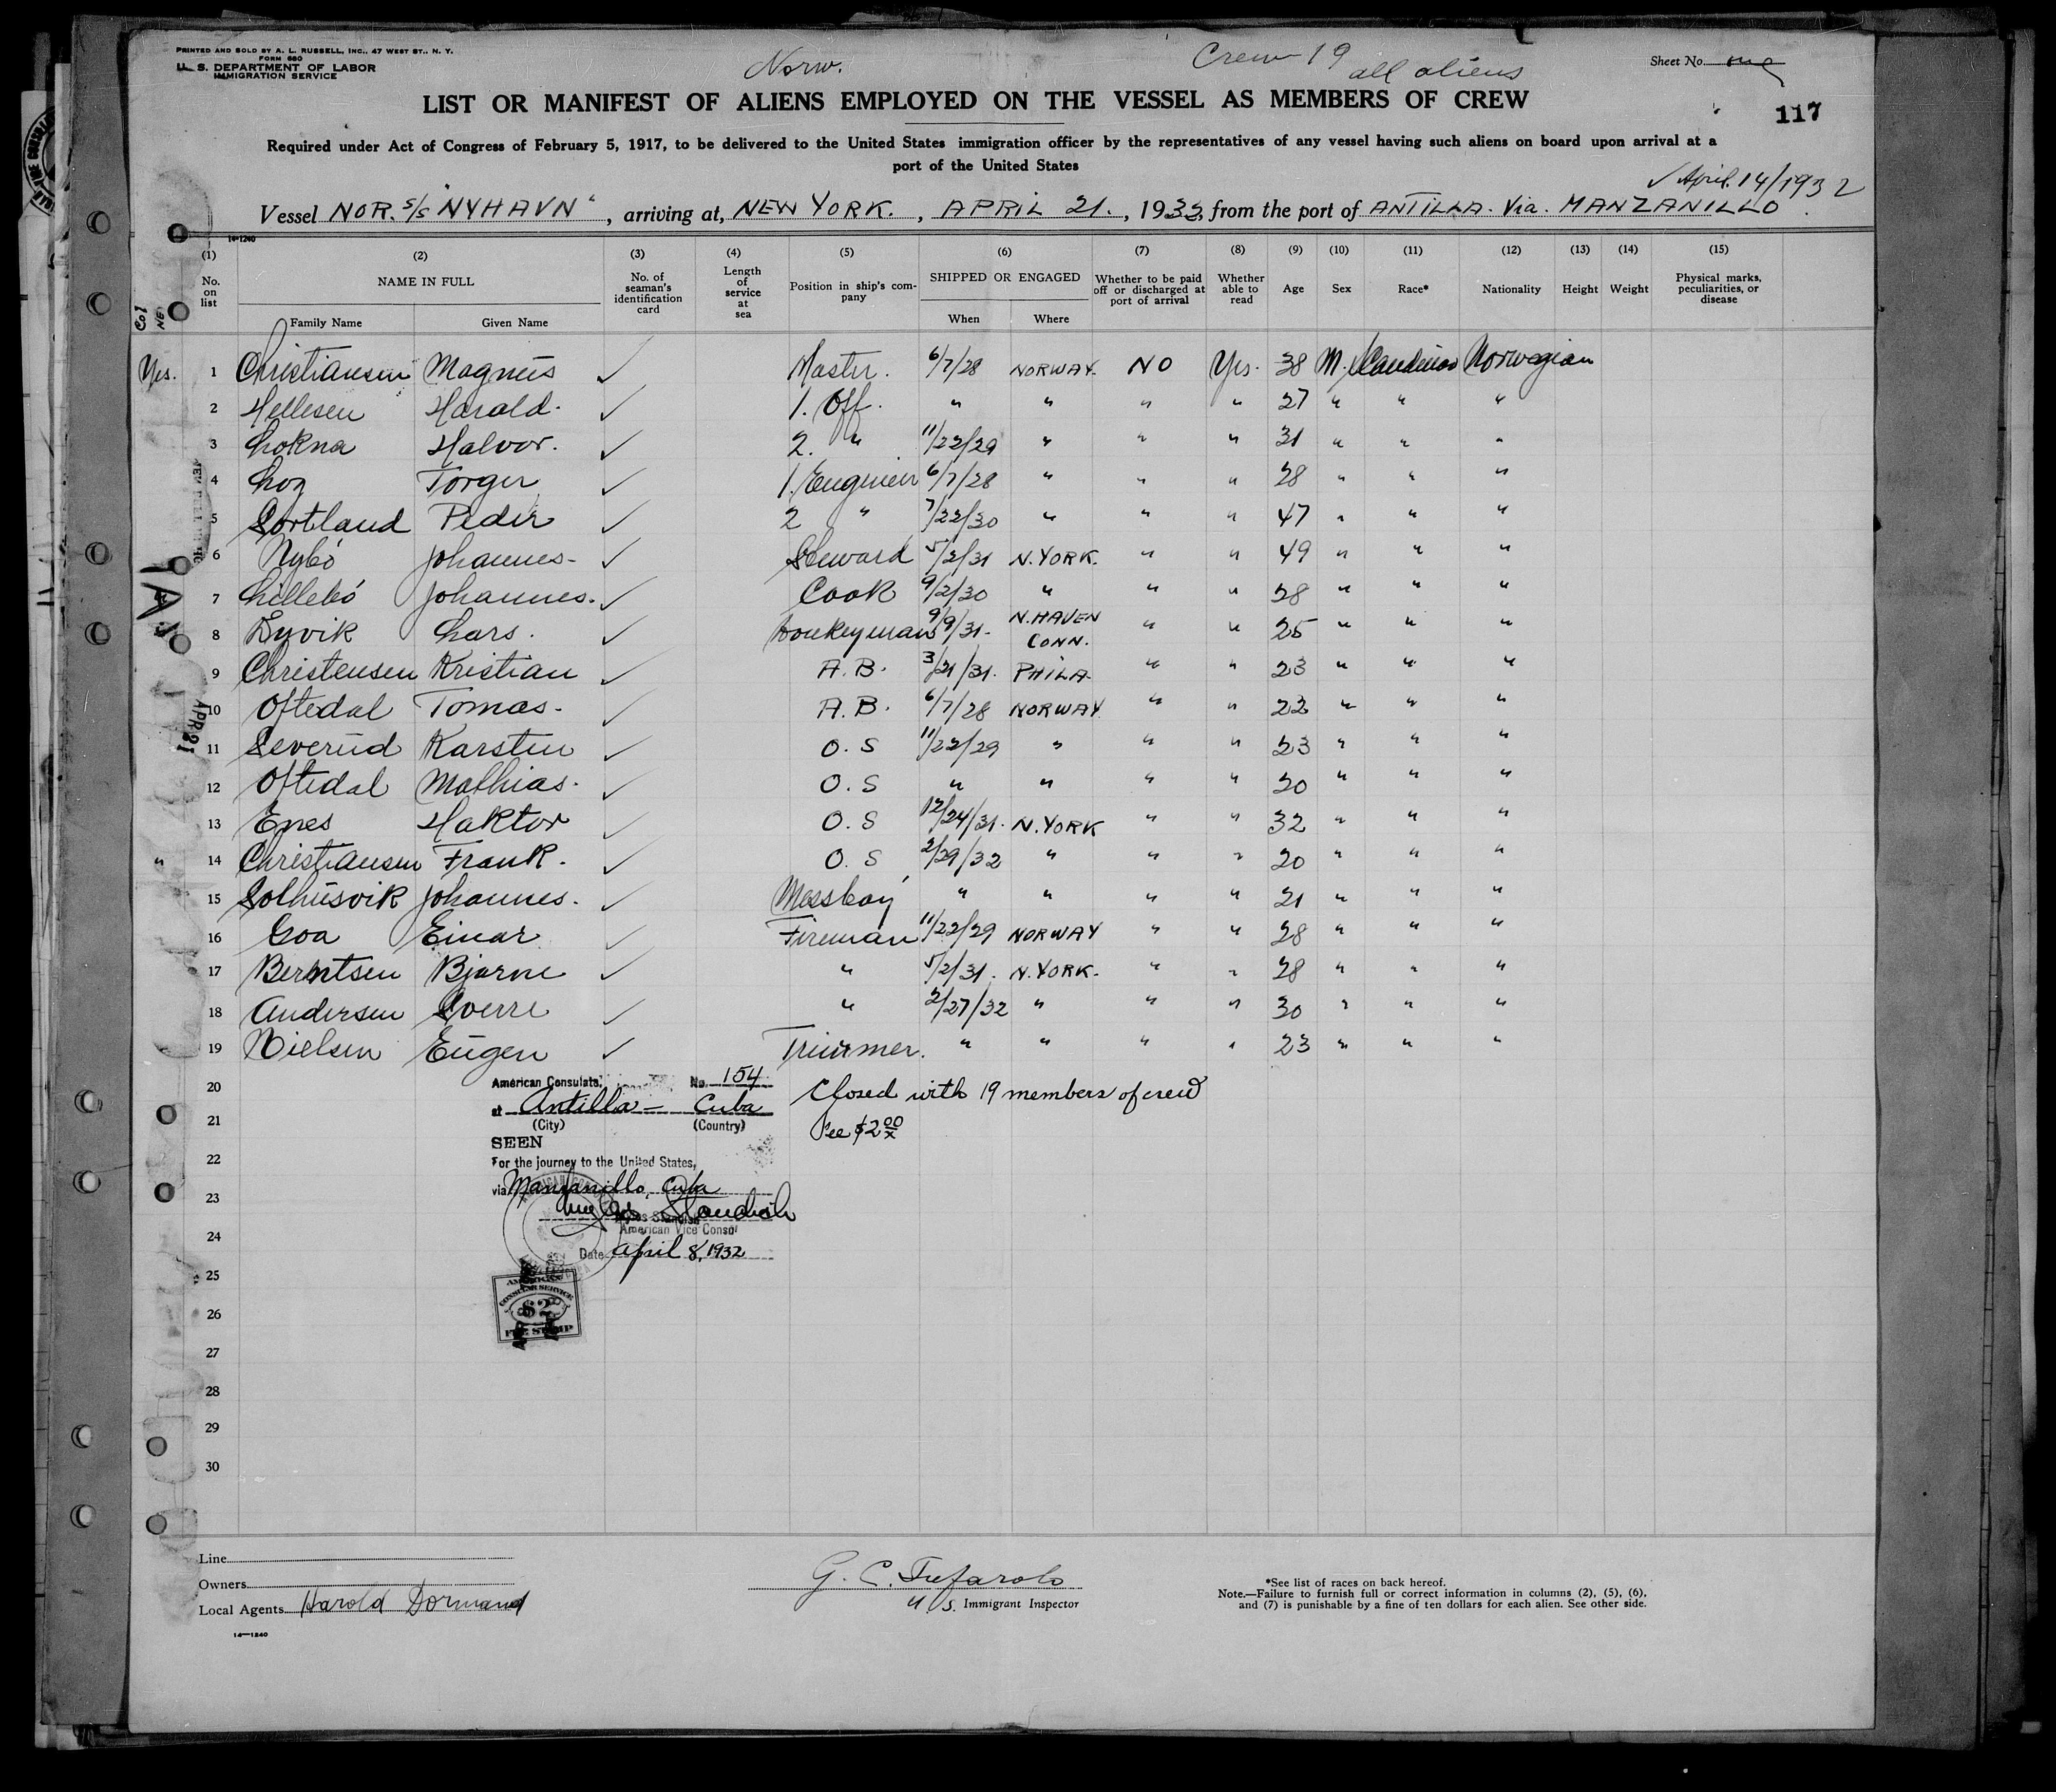 PRINTED AND SOLD BY A. L. RUSSELL, INC., 47 WEST ST., N. Y.
FORM 680
U. S. DEPARTMENT OF LABOR
IMMIGRATION SERVICE
Norw.
Crew 19
all aliens
Sheet No. one
117
LIST OR MANIFEST OF ALIENS EMPLOYED ON THE VESSEL AS MEMBERS OF CREW
Required under Act of Congress of February 5, 1917, to be delivered to the United States immigration officer by the representatives of any vessel having such aliens on board upon arrival at a
port of the United States
✓ April 14/1932
Vessel NOR. S/S "NYHAVN", arriving at, NEW YORK., APRIL 21., 1932, from the port of ANTILLA. Via. MANZANILLO.
14-1240
(1) (2) (3) (4) (5) (6) (7) (8) (9) (10) (11) (12) (13) (14) (15)
No. on list
NAME IN FULL
Family Name Given Name
No. of seaman's identification card
Length of service at sea
Position in ship's company
SHIPPED OR ENGAGED
When Where
Whether to be paid off or discharged at port of arrival
Whether able to read
Age
Sex
Race*
Nationality
Height
Weight
Physical marks, peculiarities, or disease
Yes. 1 Christiansen Magnus ✓ Master. 6/7/28 NORWAY. NO Yes. 38 M. Norwegian
2 Hellesen Harald. ✓ 1. Off. " " " " 27 " " "
3 Lokna Halvor. ✓ 2. " 11/22/29 " " " 31 " " "
4 Torger ✓ 1. Engineer 6/7/28 " " " 28 " " "
5 Sortland Peder ✓ 2 " 7/22/30 " " " 47 " " "
6 Nybó Johannes- ✓ Steward 5/2/31 N.YORK. " " 49 " " "
7 Lillebó Johannes. ✓ Cook 9/2/30 " " " 28 " " "
8 Dyvik Lars. ✓ Donkeyman 9/9/31. N.HAVEN CONN. " " 25 " " "
9 Christensen Kristian ✓ A.B. 3/21/31. PHILA. " " 23 " " "
10 Oftedal Tomas. ✓ A.B. 6/7/28 NORWAY " " 22 " " "
11 Severud Karsten ✓ O. S 11/22/29 " " " 23 " " "
12 Oftedal Mathias. ✓ O. S " " " " 20 " " "
13 Enes Haktor ✓ O. S 12/24/31. N.YORK " " 32 " " "
" 14 Christiansen Frank. ✓ O. S 2/29/32 " " " 20 " " "
15 Solhusvik Johannes. ✓ Messboy " " " " 21 " " "
16 Goa Einar ✓ Fireman 11/22/29 NORWAY " " 28 " " "
17 Berntsen Bjarne ✓ " 5/2/31. N.YORK. " " 28 " " "
18 Andersen Sverre ✓ " 2/27/32 " " " 30 " " "
19 Nielsen Eugen ✓ Trimmer. " " " " 23 " " "
20
21
22
23
24
25
26
27
28
29
30
APR 21
American Consulate, No. 154
at Antilla - Cuba
(City) (Country)
SEEN
For the journey to the United States,
via Manzanillo, Cuba
Myles Standish
American Vice Consul
Date April 8, 1932
Closed with 19 members of crew
Fee $2.00
AMERICAN
CONSULAR SERVICE
$2
FEE STAMP
Line
Owners
Local Agents Harold Dormand
14-1240
G. C. Tufarolo
U. S. Immigrant Inspector
*See list of races on back hereof.
Note.—Failure to furnish full or correct information in columns (2), (5), (6),
and (7) is punishable by a fine of ten dollars for each alien. See other side.